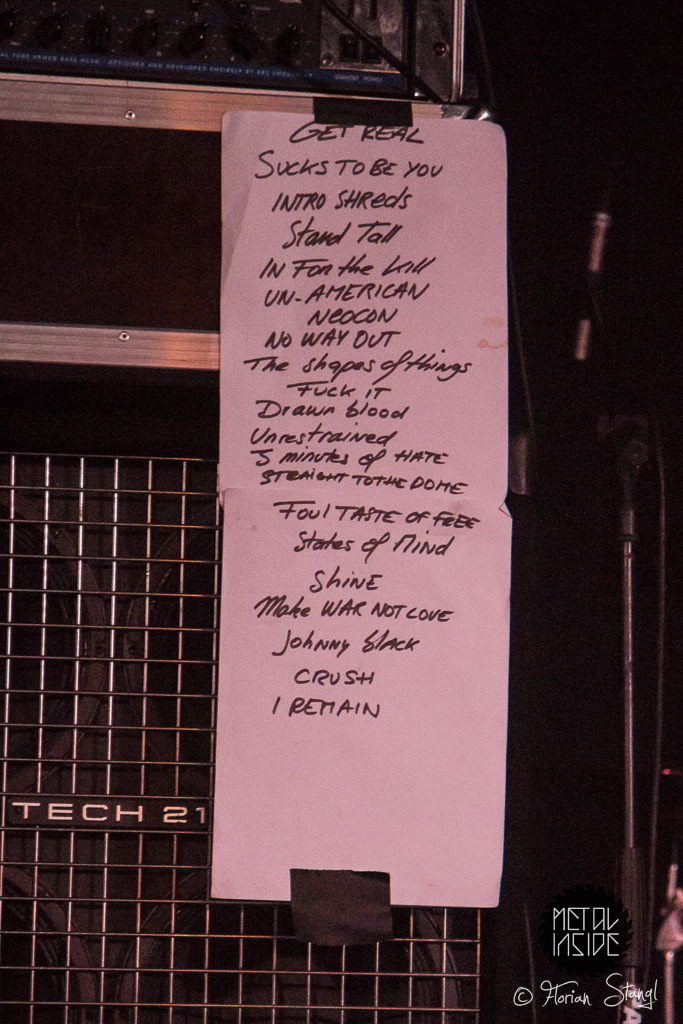 STANDBY POWER
GET REAL
SUCKS TO BE YOU
INTRO SHReds
Stand Tall
IN FOR the kill
UN-AMERICAN
NEOCON
NO WAY OUT
The shapes of things
FUCK IT
Drawn blood
Unrestrained
5 minutes of HATE
STRAIGHT TO THE DOME
FOUL TASTE OF FREE
States of Mind
SHINE
Make WAR NOT LOVE
Johnny black
CRUSH
I REMAIN
TECH 21
METAL
INSIDE
© Florian Stangl